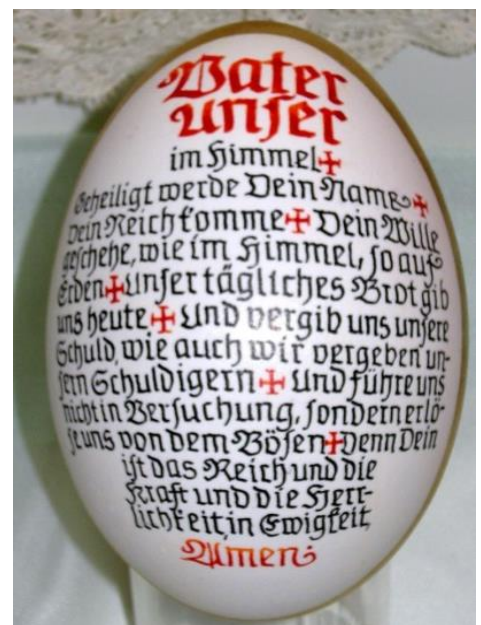 Vater
unser
im Himmel
Geheiligt werde Dein Name
Dein Reich komme Dein Wille
geschehe, wie im Himmel, so auf
Erden Unser tägliches Brot gib
uns heute Und vergib uns unsere
Schuld, wie auch wir vergeben un-
sern Schuldigern Und führe uns
nicht in Versuchung, sondern erlö-
se uns von dem Bösen Denn Dein
ist das Reich und die
Kraft und die Herr-
lichkeit, in Ewigkeit,
Amen